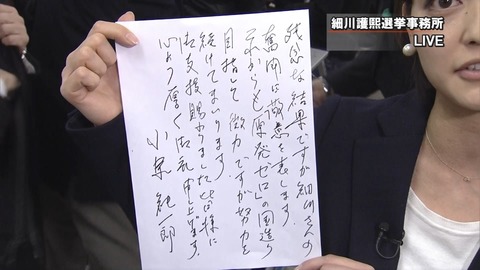 細川護熙選挙事務所
LIVE
残念な結果ですが細川さんの
奮闘に敬意を表します
これからも「原発ゼロ」の国造りを
目指して微力ですが努力を
続けてまいります
御支援賜わりました皆様に
心より厚く御礼申し上げます。
小泉純一郎